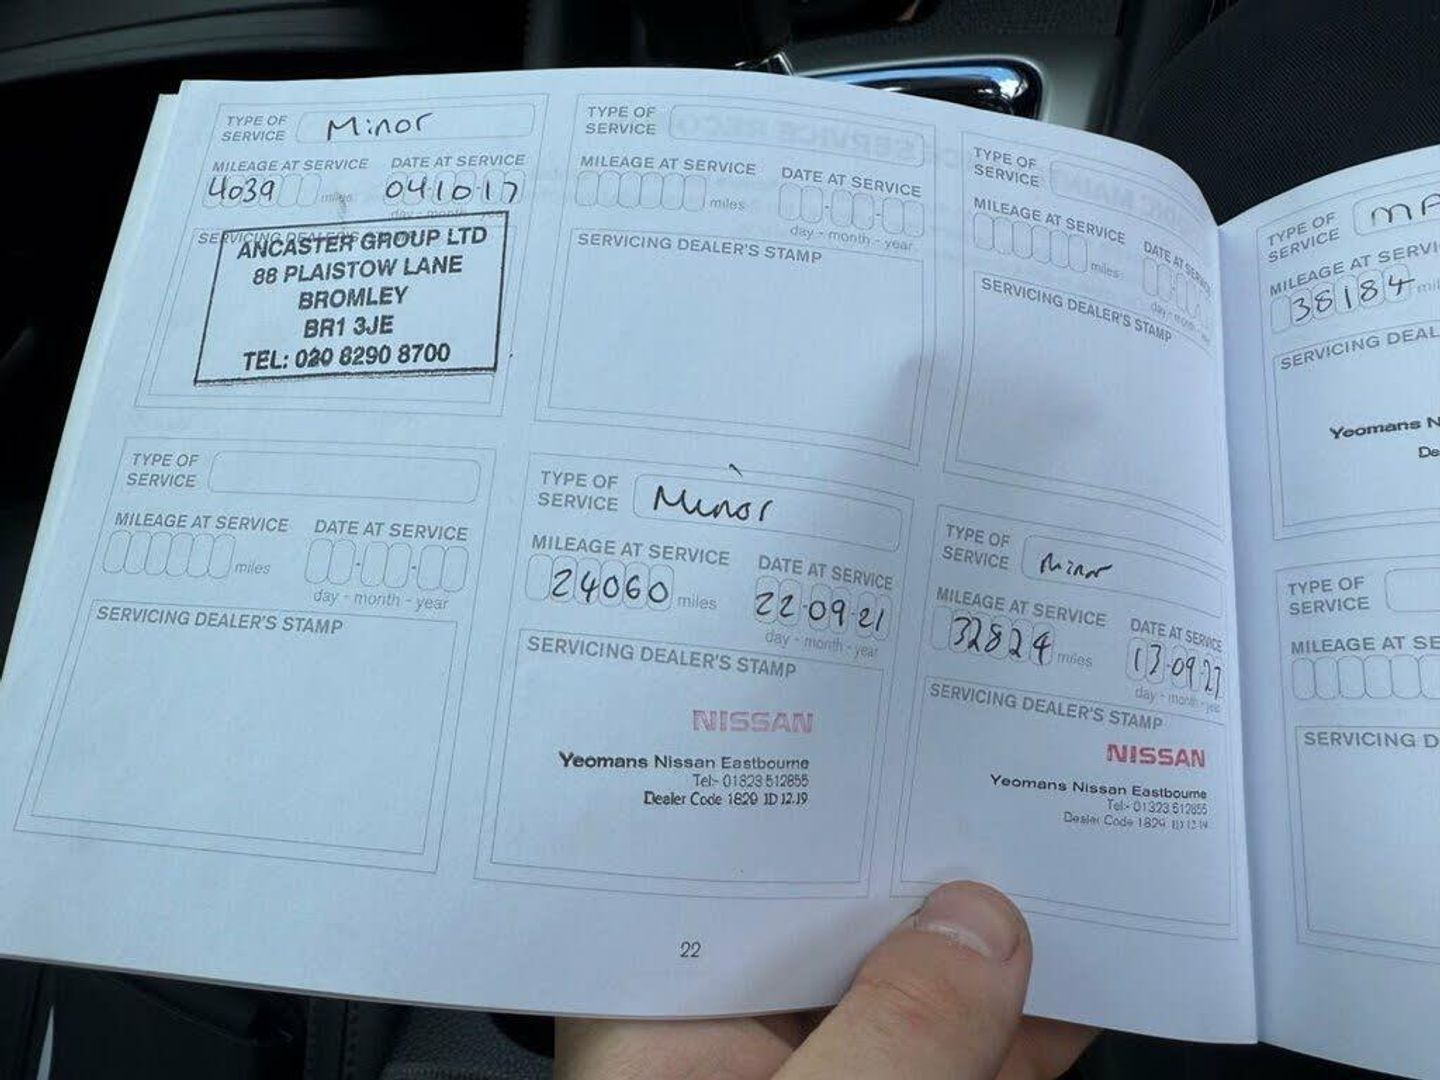 TYPE OF
SERVICE
Minor
MILEAGE AT SERVICE
DATE AT SERVICE
4039
miles
041017
day - month - year
SERVICING DEALER'S STAMP
ANCASTER GROUP LTD
88 PLAISTOW LANE
BROMLEY
BR1 3JE
TEL: 020 8290 8700
TYPE OF
SERVICE
MILEAGE AT SERVICE
DATE AT SERVICE
miles
day - month - year
SERVICING DEALER'S STAMP
TYPE OF
SERVICE
MILEAGE AT SERVICE
DATE AT SERVICE
miles
day - month
SERVICING DEALER'S STAMP
TYPE OF
SERVICE
MILEAGE AT SERVICE
DATE AT SERVICE
miles
day - month - year
SERVICING DEALER'S STAMP
TYPE OF
SERVICE
Minor
MILEAGE AT SERVICE
DATE AT SERVICE
24060
miles
22-09-21
day - month - year
SERVICING DEALER'S STAMP
NISSAN
Yeomans Nissan Eastbourne
Tel:- 01323 512855
Dealer Code 1829 ID 12.19
TYPE OF
SERVICE
Minor
MILEAGE AT SERVICE
DATE AT SERVICE
32824
miles
13-09-
day - month - year
SERVICING DEALER'S STAMP
NISSAN
Yeomans Nissan Eastbourne
Tel:- 01323 512855
Dealer Code 1829 ID 12.19
22
TYPE OF
SERVICE
MA
MILEAGE AT SERVI
38184
mil
SERVICING DEAL
Yeomans N
De
TYPE OF
SERVICE
MILEAGE AT SE
SERVICING D